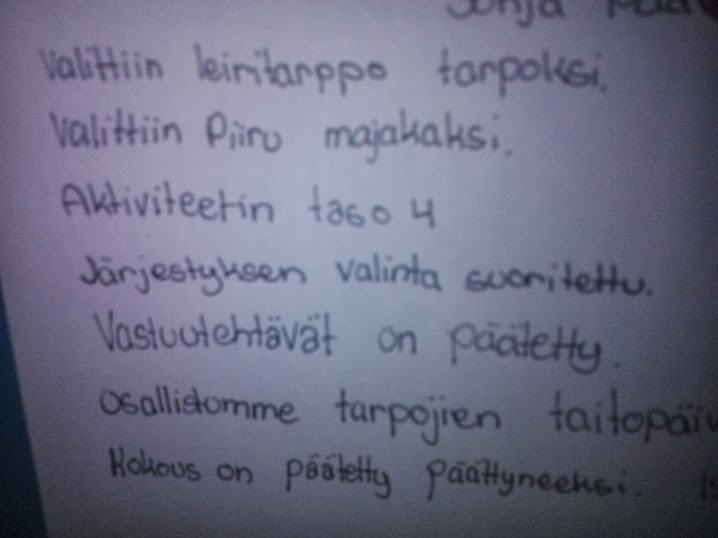 Sonja
Valittiin leiritarppo tarpoksi.
Valittiin Piiru majakaksi.
Aktiviteetin taso 4
Järjestyksen valinta suoritettu.
Vastuutehtävät on päätetty.
Osallistomme tarpojien taitopäiv
Kokous on päätetty päättyneeksi.